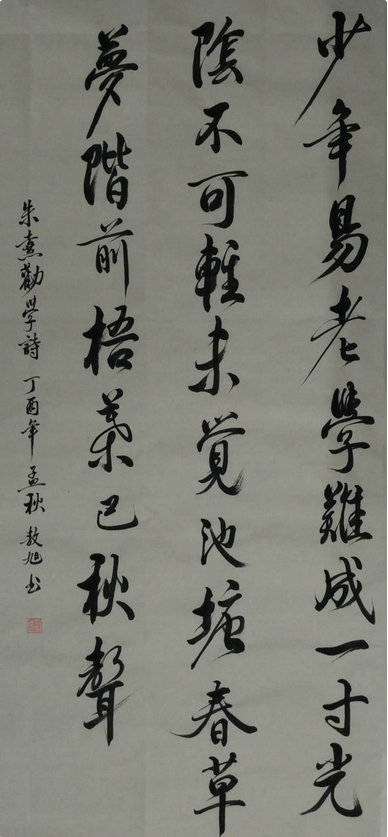 少年易老學難成一寸光
陰不可輕未覺池塘春草
夢階前梧葉已秋聲
朱熹勸學詩 丁酉年 孟秋 敖旭书